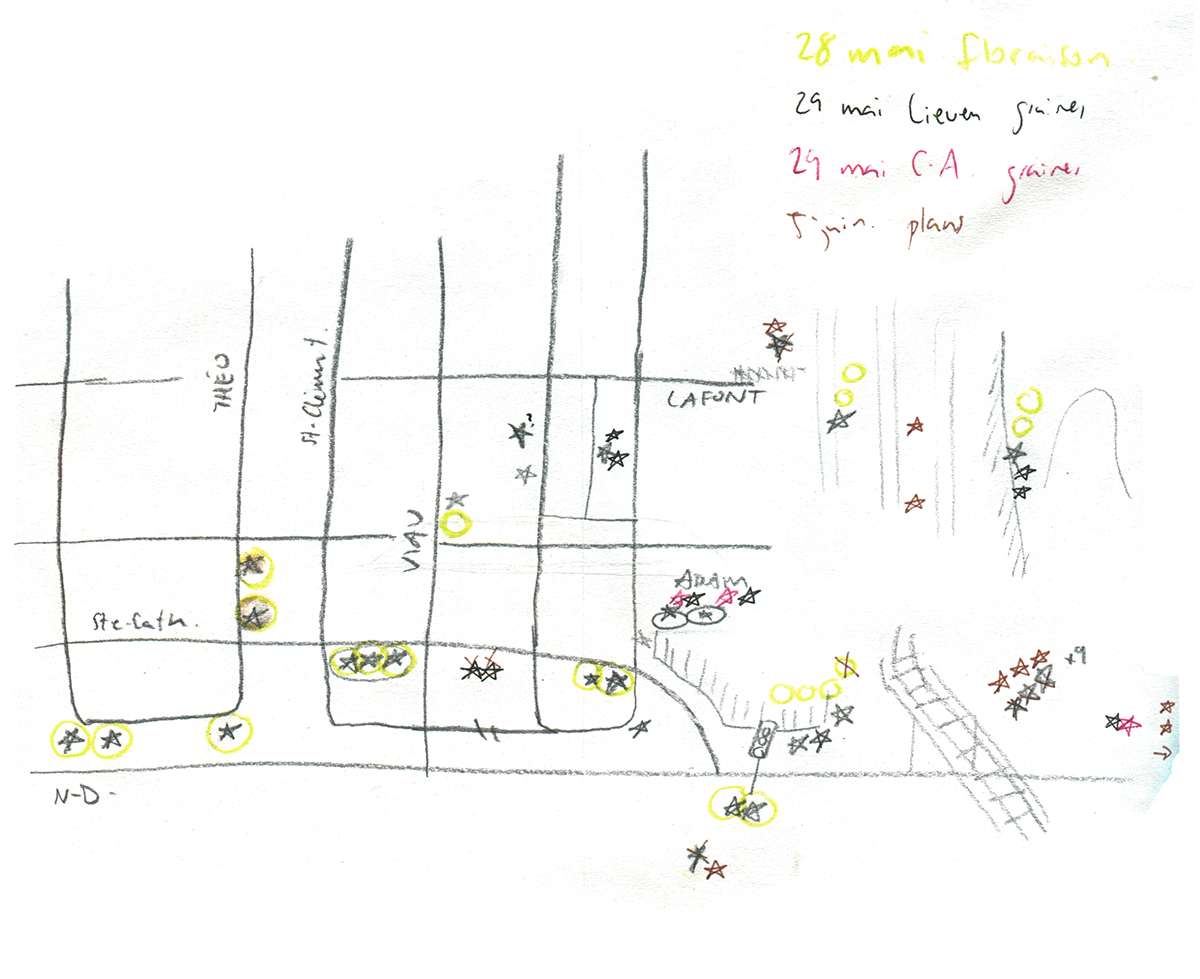 28 mai floraison
29 mai Lieven graines
29 mai C.A. graines
5 juin. plans
THÉO
St-Clément.
LAFONT
?
VIAU
ADAM
Ste-Cath.
+9
N-D-